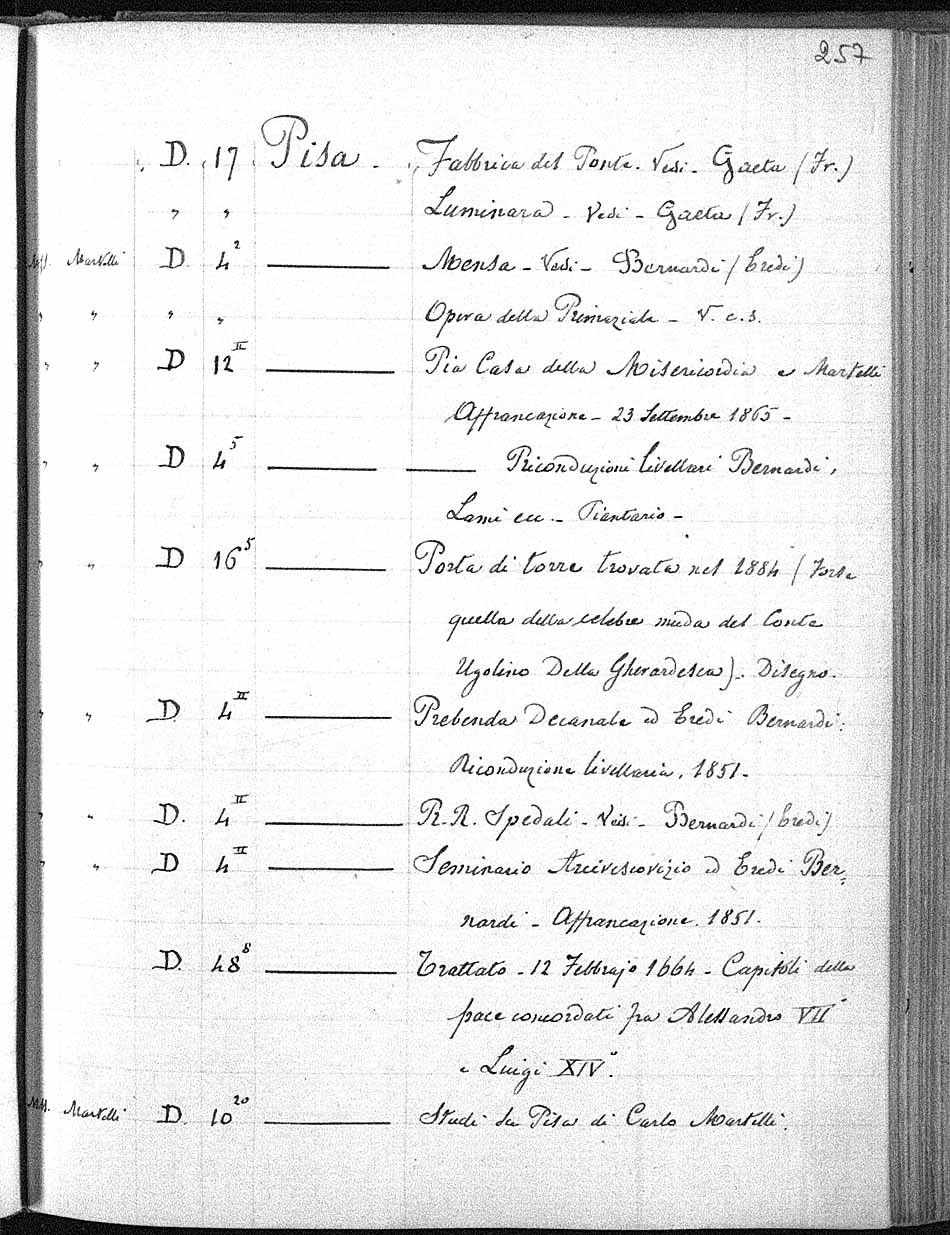 257
D. 17 Pisa - Fabbrica del Ponte. Vedi - Gaeta (Fr.)
" " Luminara - Vedi - Gaeta (Fr.)
Mss. Martelli D 4² ——— Mensa - Vedi - Bernardi (Eredi)
" " " " Opera della Primaziale - V. c. s.
" " D 12ᴵᴵ ——— Pia Casa della Misericordia e Martelli
Affrancazione - 23 Settembre 1865 -
" " D 4⁵ ——— ——— Riconduzioni livellari Bernardi,
Lami ecc. - Piantario -
" " D 16⁵ ——— Porta di torre trovata nel 1884 (Forse
quella della celebre muda del Conte
Ugolino Della Gherardesca). Disegno.
" " D 4ᴵᴵ ——— Prebenda Decanale ed Eredi Bernardi.
Riconduzione livellaria. 1851 -
" " D. 4ᴵᴵ ——— R. R. Spedali - Vedi - Bernardi (Eredi)
" " D 4ᴵᴵ ——— Seminario Arcivescovizio ed Eredi Ber-
nardi - Affrancazione. 1851.
D. 48⁸ ——— Trattato - 12 Febbrajo 1664 - Capitoli della
pace concordati fra Alessandro VII°
e Luigi XIV°.
Mss. Martelli D 10²⁰ ——— Studi su Pisa di Carlo Martelli.